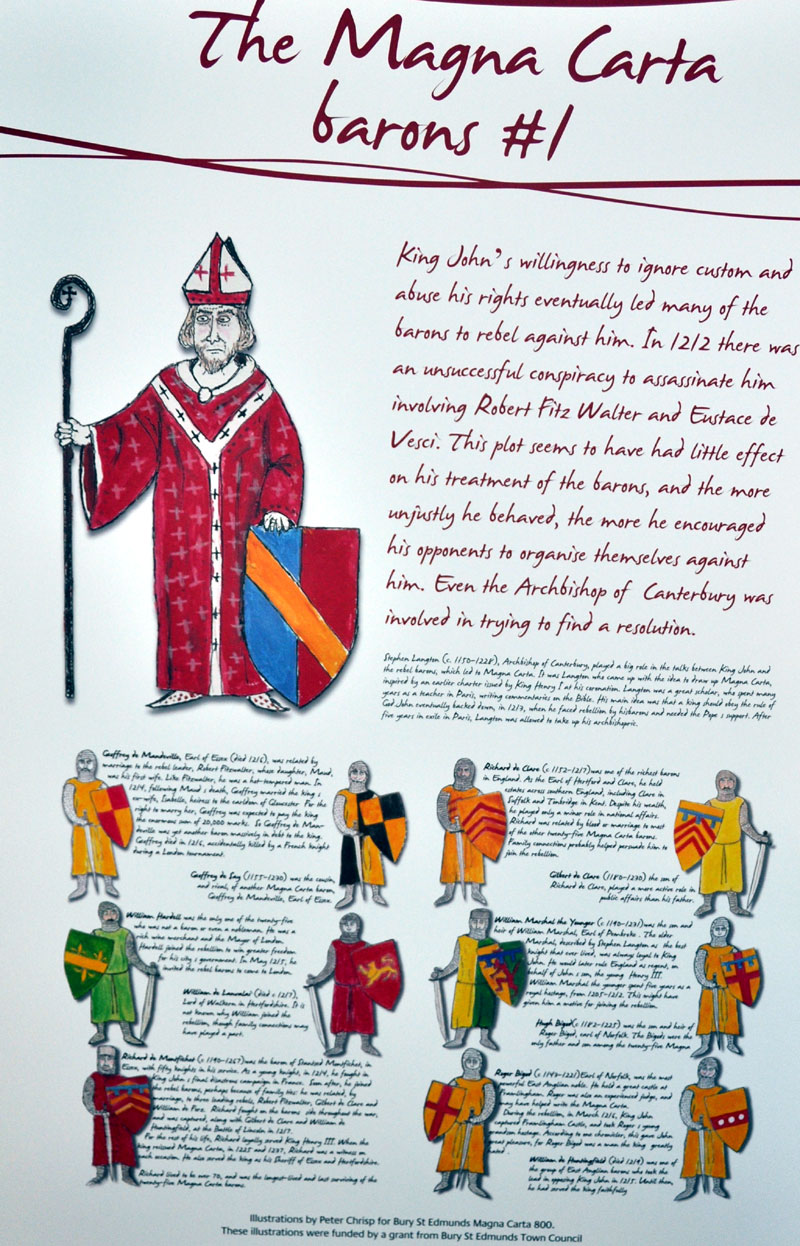 The Magna Carta
barons #1
King John's willingness to ignore custom and
abuse his rights eventually led many of the
barons to rebel against him. In 1212 there was
an unsuccessful conspiracy to assassinate him
involving Robert Fitz Walter and Eustace de
Vesci. This plot seems to have had little effect
on his treatment of the barons, and the more
unjustly he behaved, the more he encouraged
his opponents to organise themselves against
him. Even the Archbishop of Canterbury was
involved in trying to find a resolution.
Stephen Langton (c. 1150-1228), Archbishop of Canterbury, played a big role in the talks between King John and
the rebel barons, which led to Magna Carta. It was Langton who came up with the idea to draw up Magna Carta,
inspired by an earlier charter issued by King Henry I at his coronation. Langton was a great scholar, who spent many
years as a teacher in Paris, writing commentaries on the Bible. His main idea was that a king should obey the rule of
God John eventually backed down, in 1213, when he faced rebellion by hisbarons and needed the Pope s support. After
five years in exile in Paris, Langton was allowed to take up his archbishopric.
Geoffrey de Mandeville, Earl of Essex (died 1216), was related by
marriage to the rebel leader, Robert Fitzwalter, whose daughter, Maud,
was his first wife. Like Fitzwalter, he was a hot-tempered man. In
1214, following Maud s death, Geoffrey married the king s
ex-wife, Isabelle, heiress to the earldom of Gloucester. For the
right to marry her, Geoffrey was expected to pay the king
the enormous sum of 20,000 marks. So Geoffrey de Man-
deville was yet another baron massively in debt to the king.
Geoffrey died in 1216, accidentally killed by a French knight
during a London tournament.
Geoffrey de Say (1155-1230) was the cousin,
and rival, of another Magna Carta baron,
Geoffrey de Mandeville, Earl of Essex.
William Hardell was the only one of the twenty-five
who was not a baron or even a nobleman. He was a
rich wine merchant and the Mayor of London.
Hardell joined the rebellion to win greater freedom
for his city s government. In May 1215, he
invited the rebel barons to come to London.
William de Lanvalei (died c 1217),
Lord of Walkern in Hertfordshire. It is
not known why William joined the
rebellion, though family connections may
have played a part.
Richard de Montfichet (c. 1190-1267) was the baron of Stansted Montfichet, in
Essex, with fifty knights in his service. As a young knight, in 1214, he fought in
King John s final disastrous campaign in France. Soon after, he joined
the rebel barons, perhaps because of family ties: he was related, by
marriage, to three leading rebels, Robert Fitzwalter, Gilbert de Clare and
William de Fors. Richard fought on the barons side throughout the war,
and was captured, along with Gilbert de Clare and William de
Huntingfield, at the Battle of Lincoln in 1217.
For the rest of his life, Richard loyally served King Henry III. When the
king reissued Magna Carta, in 1225 and 1237, Richard was a witness on
each occasion. He also served the king as his Sheriff of Essex and Hertfordshire.
Richard lived to be over 70, and was the longest-lived and last surviving of the
twenty-five Magna Carta barons.
Richard de Clare (c 1152-1217) was one of the richest barons
in England. As the Earl of Hertford and Clare, he held
estates across southern England, including Clare in
Suffolk and Tonbridge in Kent. Despite his wealth,
he played only a minor role in national affairs.
Richard was related by blood or marriage to most
of the other twenty-five Magna Carta barons.
Family connections probably helped persuade him to
join the rebellion.
Gilbert de Clare (1180-1230) the son of
Richard de Clare, played a more active role in
public affairs than his father.
William Marshal the Younger (c 1190-1231) was the son and
heir of William Marshal, Earl of Pembroke. The elder
Marshal, described by Stephen Langton as the best
knight that ever lived, was always loyal to King
John. He would later rule England as regent, on
behalf of John s son, the young Henry III.
William Marshal the younger spent five years as a
royal hostage, from 1205-1212. This might have
given him a motive for joining the rebellion.
Hugh Bigod (c 1182-1225) was the son and heir of
Roger Bigod, earl of Norfolk. The Bigods were the
only father and son among the twenty-five Magna
Roger Bigod (c 1143-1221) Earl of Norfolk, was the most
powerful East Anglian noble. He held a great castle at
Framlingham. Roger was also an experienced judge, and
may have helped write the Magna Carta.
During the rebellion, in March 1216, King John
captured Framlingham Castle, and took Roger s young
grandson hostage. According to one chronicler, this gave John
great pleasure, for Roger Bigod was a man the king greatly
hated.
William de Huntingfield (died 1219) was one of
the group of East Anglian barons who took the
lead in opposing King John in 1215. Until then,
he had served the king faithfully
Illustrations by Peter Chrisp for Bury St Edmunds Magna Carta 800.
These illustrations were funded by a grant from Bury St Edmunds Town Council